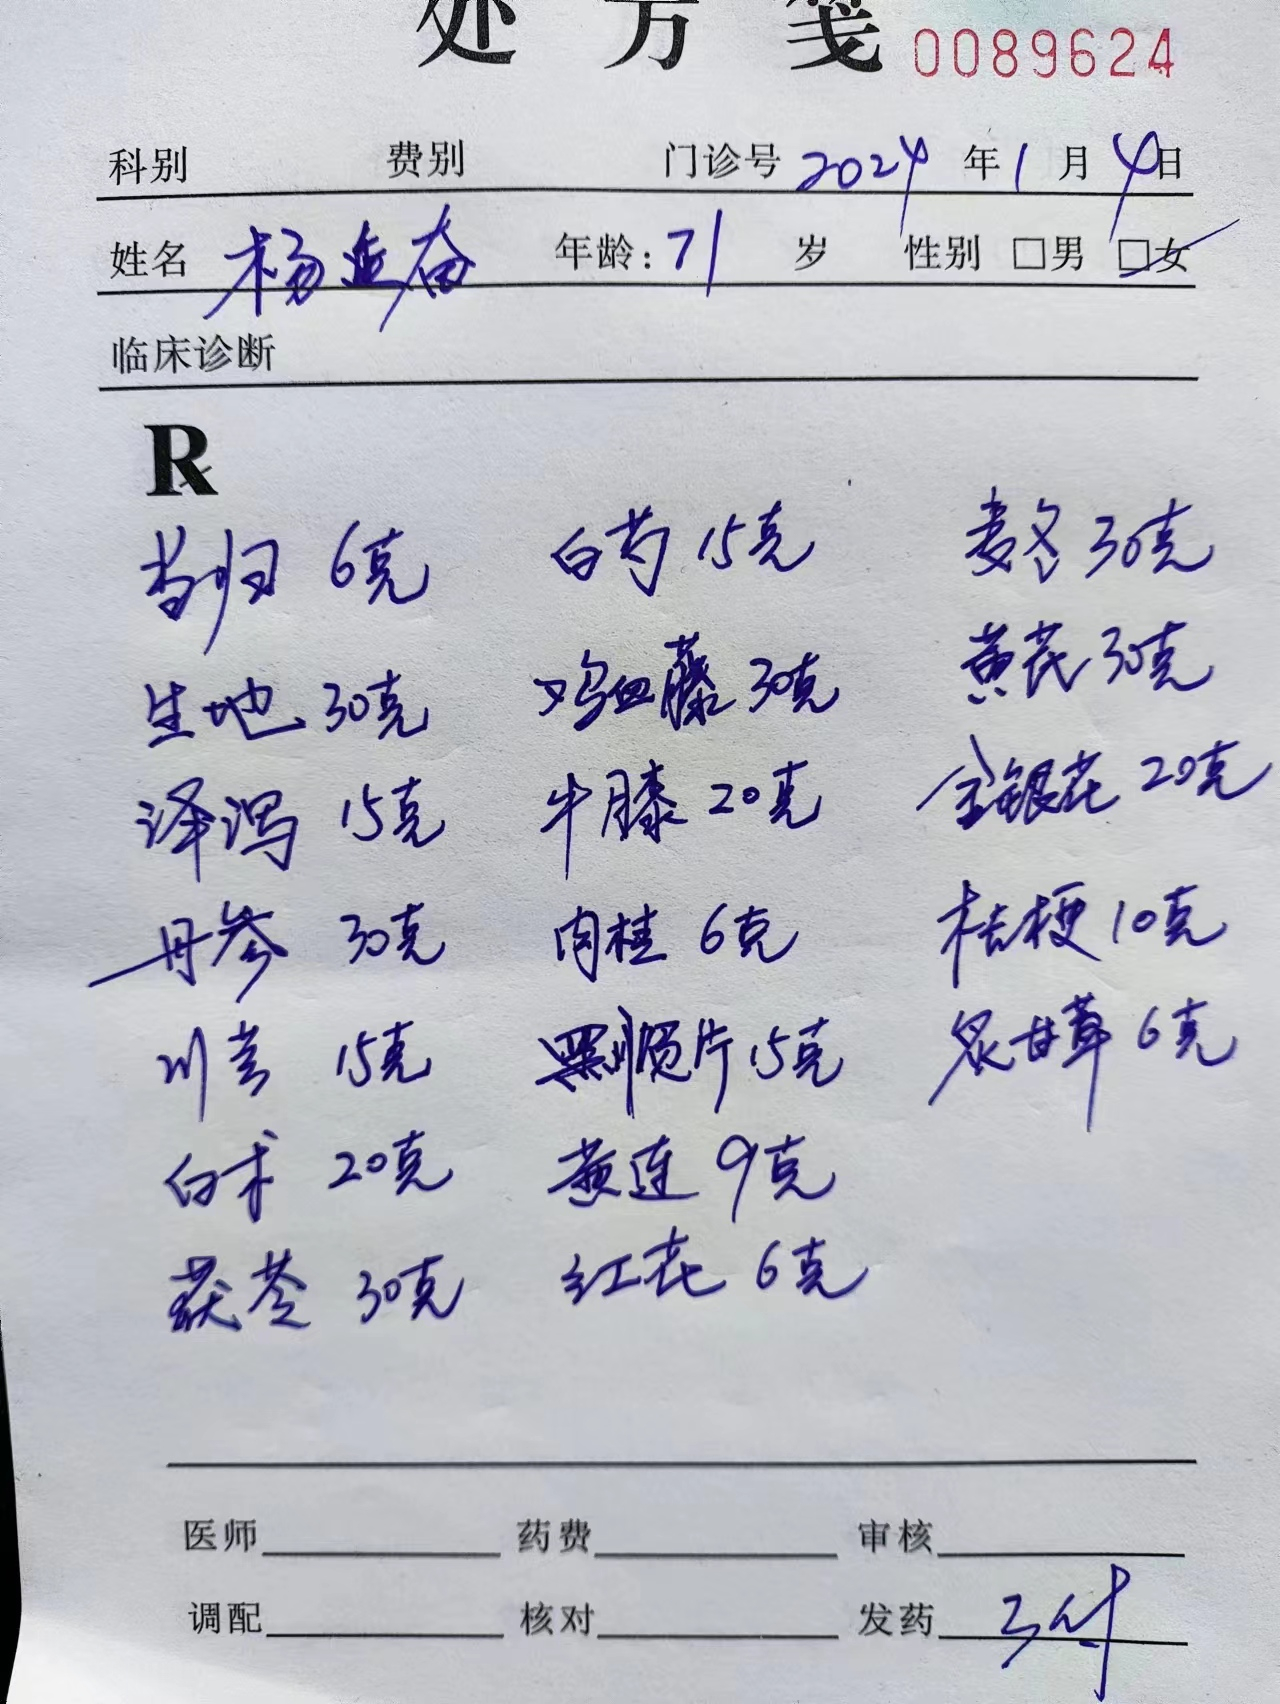 处方笺 0089624
科别 费别 门诊号 2024 年 1 月 4 日
姓名 杨连奋 年龄: 71 岁 性别 □男 □女
临床诊断
R
当归 6克 白芍 15克 麦冬 30克
生地 30克 鸡血藤 30克 黄芪 30克
泽泻 15克 牛膝 20克 金银花 20克
丹参 30克 肉桂 6克 桔梗 10克
川芎 15克 黑顺片 15克 炙甘草 6克
白术 20克 黄连 9克
茯苓 30克 红花 6克
医师 药费 审核
调配 核对 发药 3付